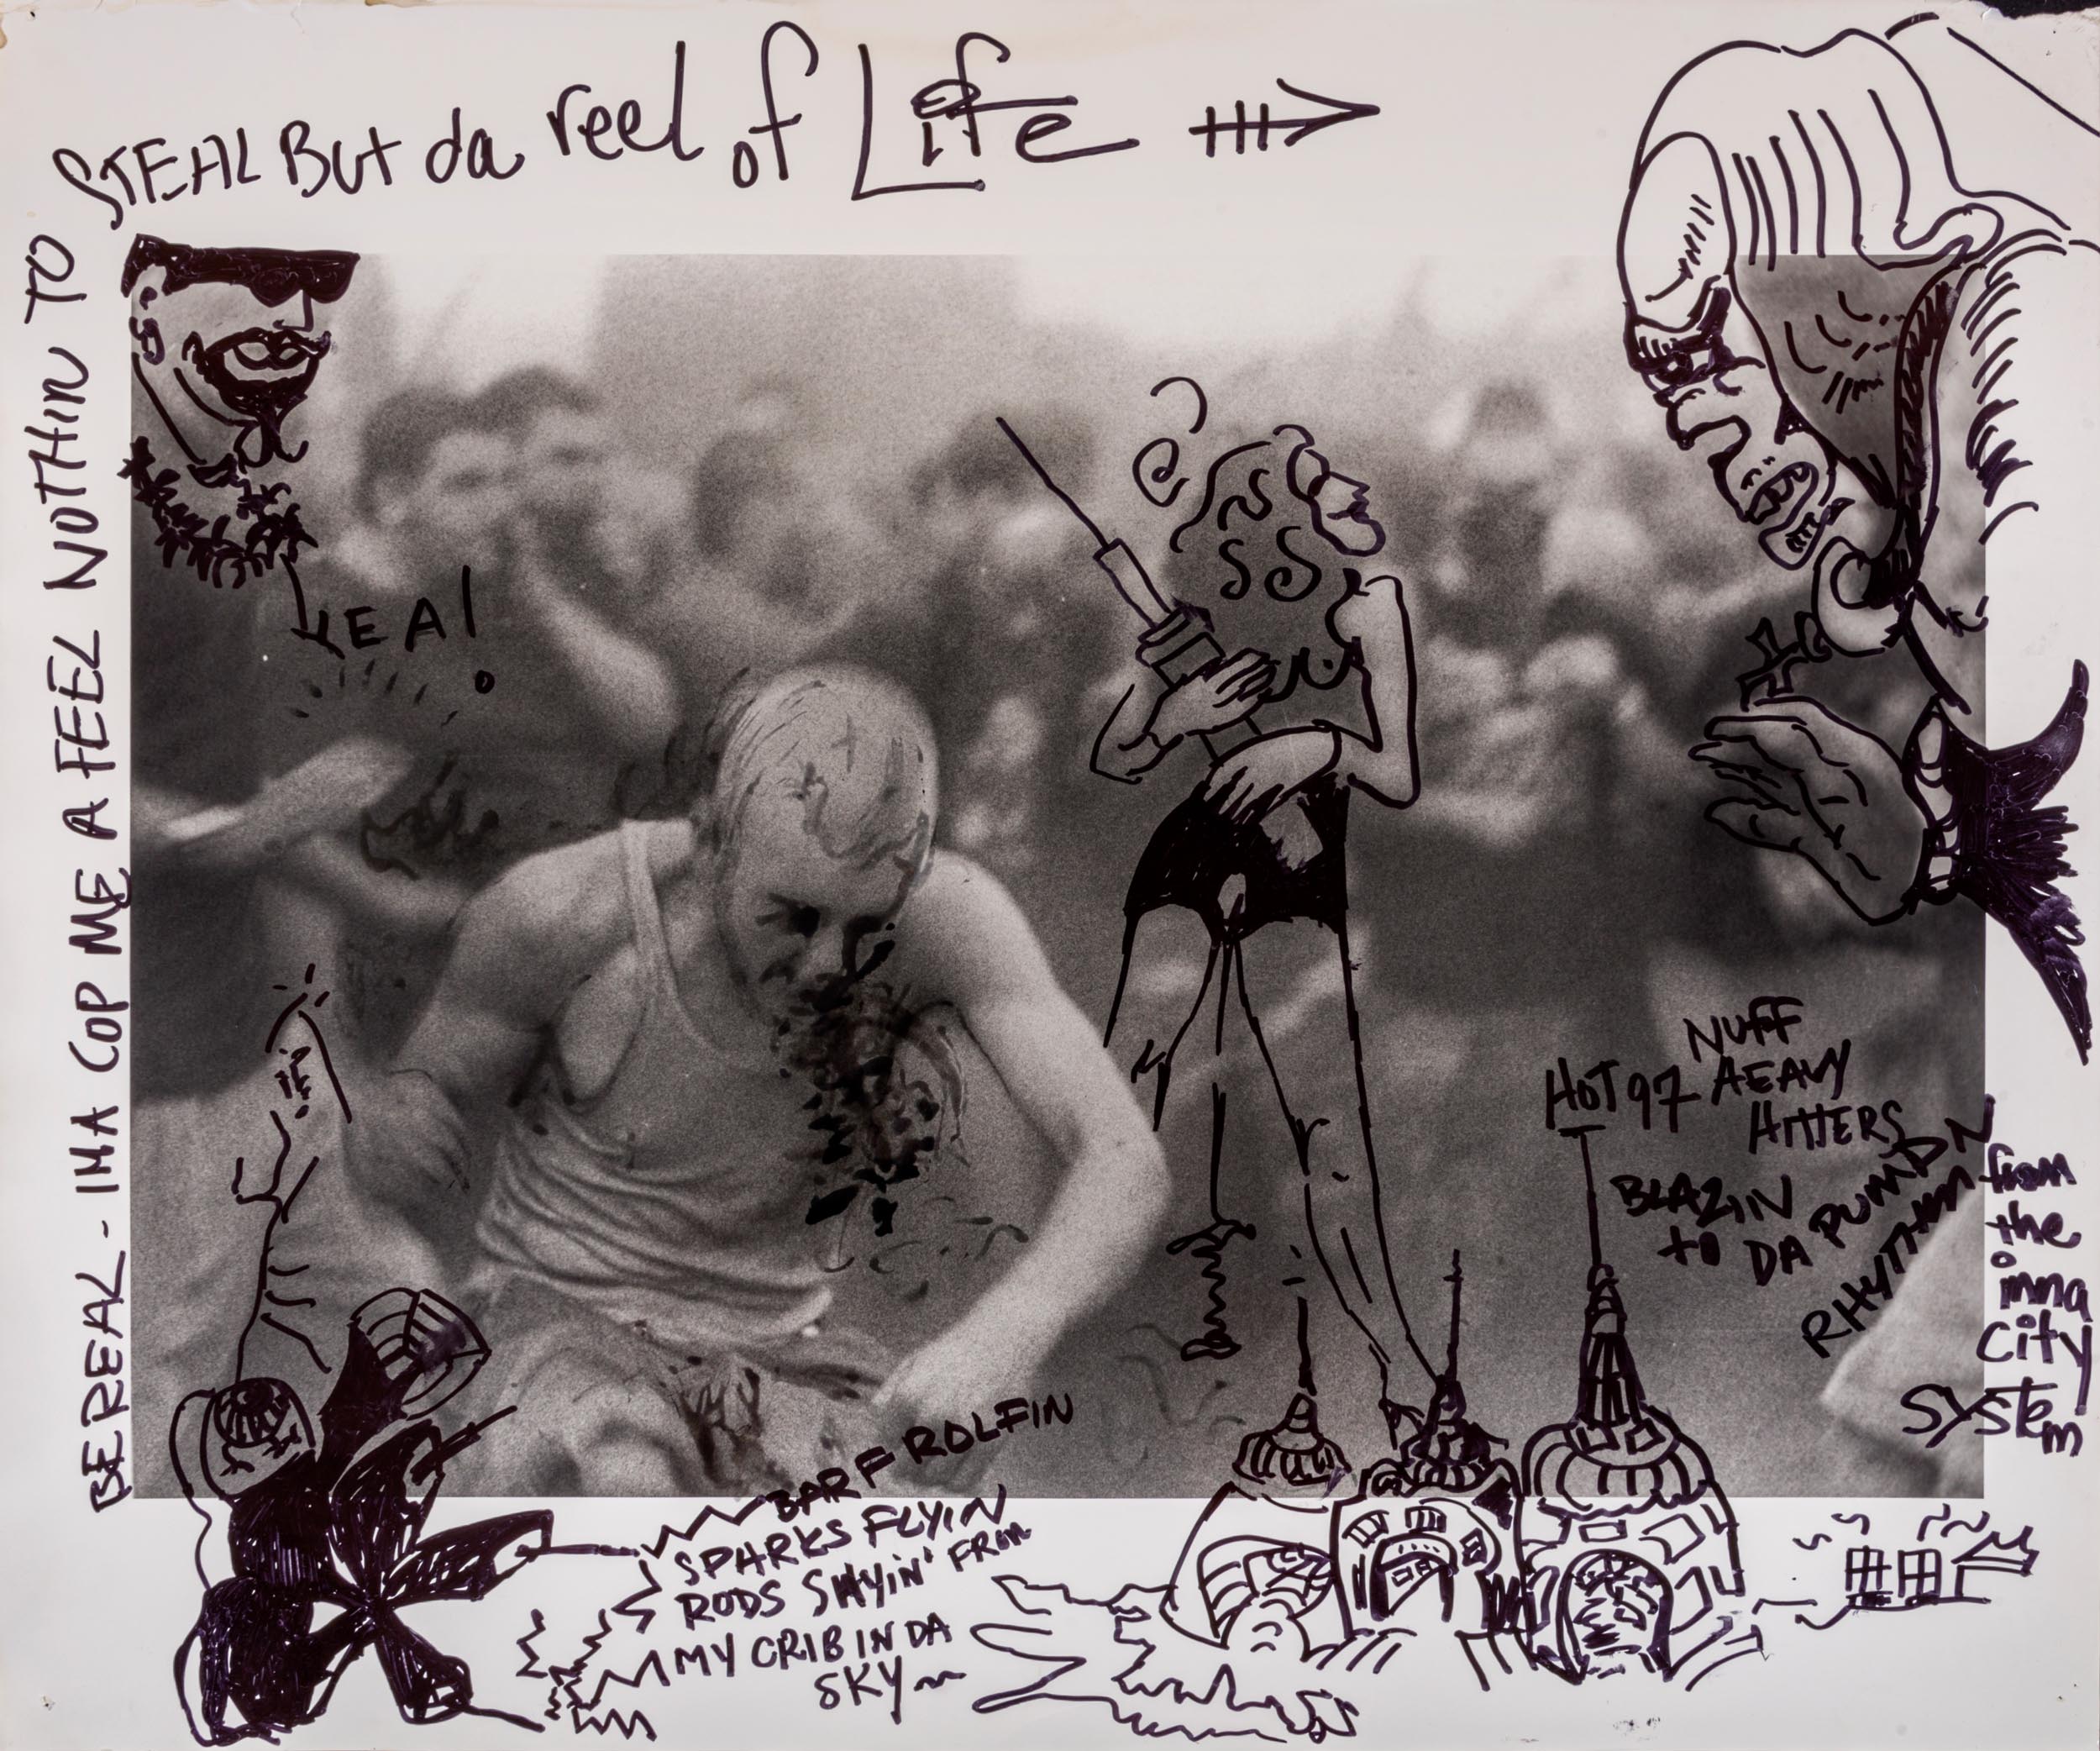 BE REAL - IMA COP ME A FEEL NOTHIN TO
STEAL BUt da reel of Life
YEA!
NUFF
HOT 97 HEAVY
HITTERS
BLAZIN
to DA PUMPN
RHYTHM from
the
inna
City
System
BARF ROLFIN
SPARKS FLYIN
RODS SHYIN' FROM
MY CRIB IN DA
SKY